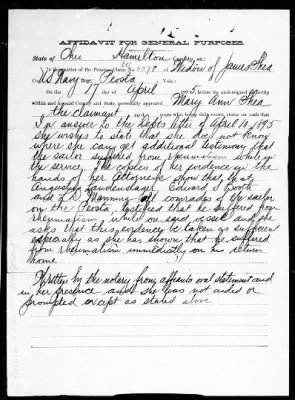 AFFIDAVIT FOR GENERAL PURPOSES
State of Ohio Hamilton County: ss
In the matter of the Pension Claim No. Widow of James Shea
U.S. Navy Peosta Vols.:
On this 17 day of April 1895 before the undersigned
in and for said County and State, personally appeared Mary Ann Shea
the claimant
In answer to the Depts letter of April 10, 1895
she wishes to state that she does not know
where she can get additional testimony that
the sailor suffered from rheumatism while in
the service. The copies of her evidence in the
hands of her Attorney show that
Augustus Laudenslager, Edward S Booth
and Manning all comrades of the sailor
on the Peosta, testified that he suffered from
rheumatism while on said vessel and she
asks that this evidence be taken as sufficient
especially as she has shown that he suffered
from rheumatism immediately on his return
home
Written by the notary from affiants oral statement and
in her presence and she was not aided or
prompted except as stated above